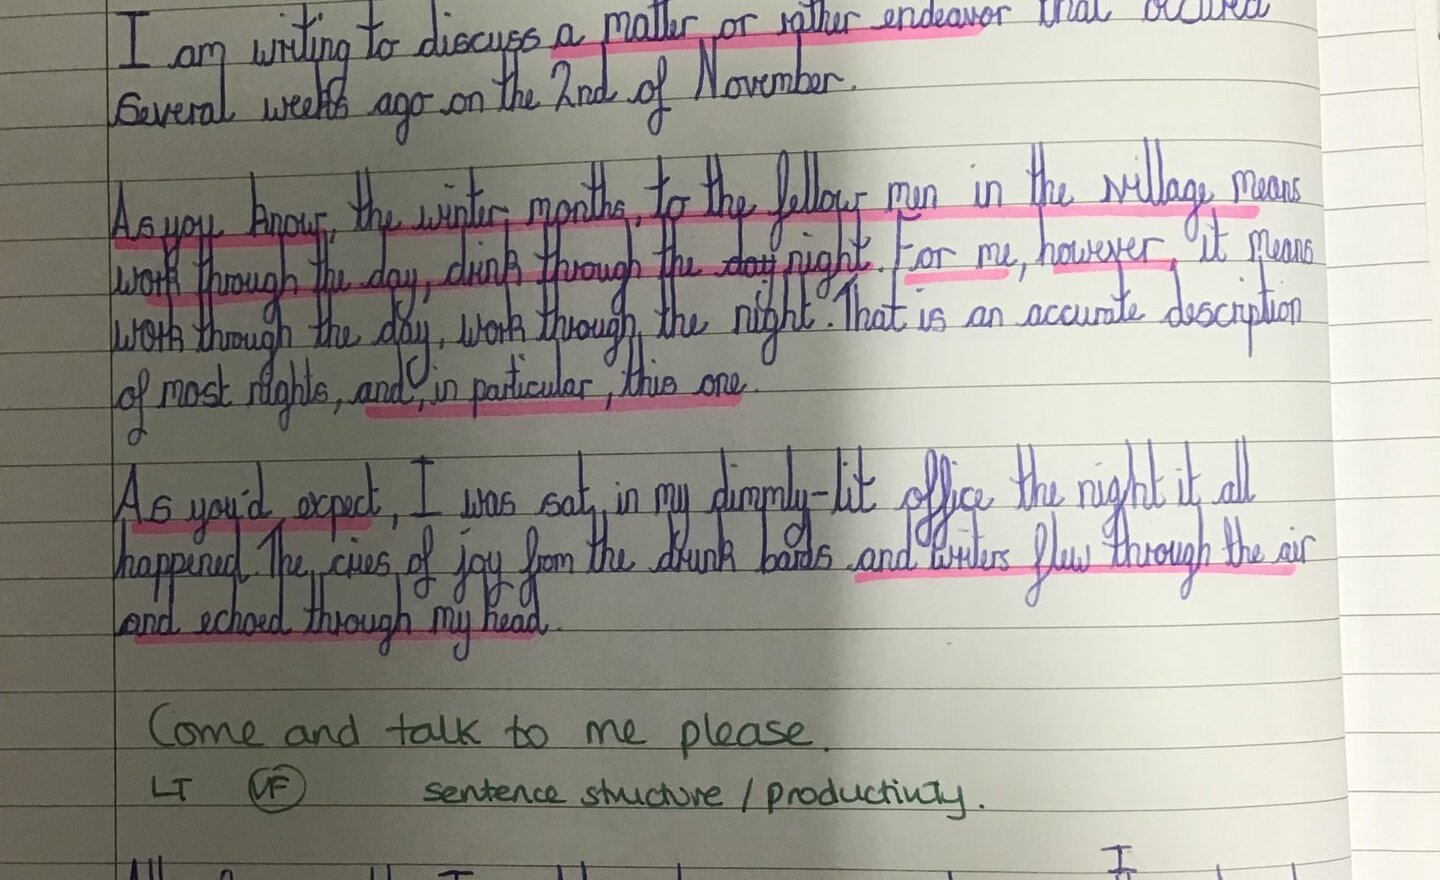 I am writing to discuss a matter or rather endeavor that occured
several weeks ago on the 2nd of November.
As you know, the winter months, to the fellow men in the village means
work through the day, drink through the day night. For me, however, it means
work through the day, work through the night. That is an accurate description
of most nights, and, in particular, this one.
As you'd expect, I was sat in my dimmly-lit office the night it all
happened. The cries of joy from the drunk bards and writers flew through the air
and echoed through my head.
Come and talk to me please.
LT VF sentence structure / productivity.